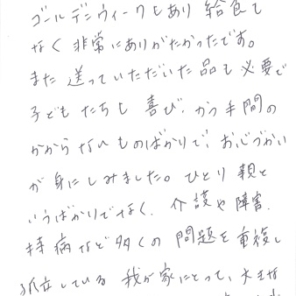 ゴールデンウィークもあり給食も
なく非常にありがたかったです。
また送っていただいた品も必要で
子どもたちも喜び、かつ手間の
かからないものばかりで、お心づかい
が身にしみました。ひとり親と
いうばかりでなく、介護や障害、
持病など多くの問題を重複し
孤立している我が家にとって、大きな